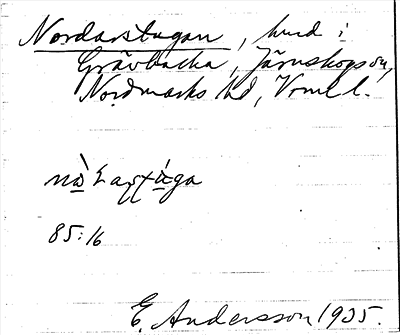 Nordastugan, hmd i
Gråvbacka, Järnskogs sn,
Nordmarks hd, Vrml l.
85:16
E. Andersson 1935.